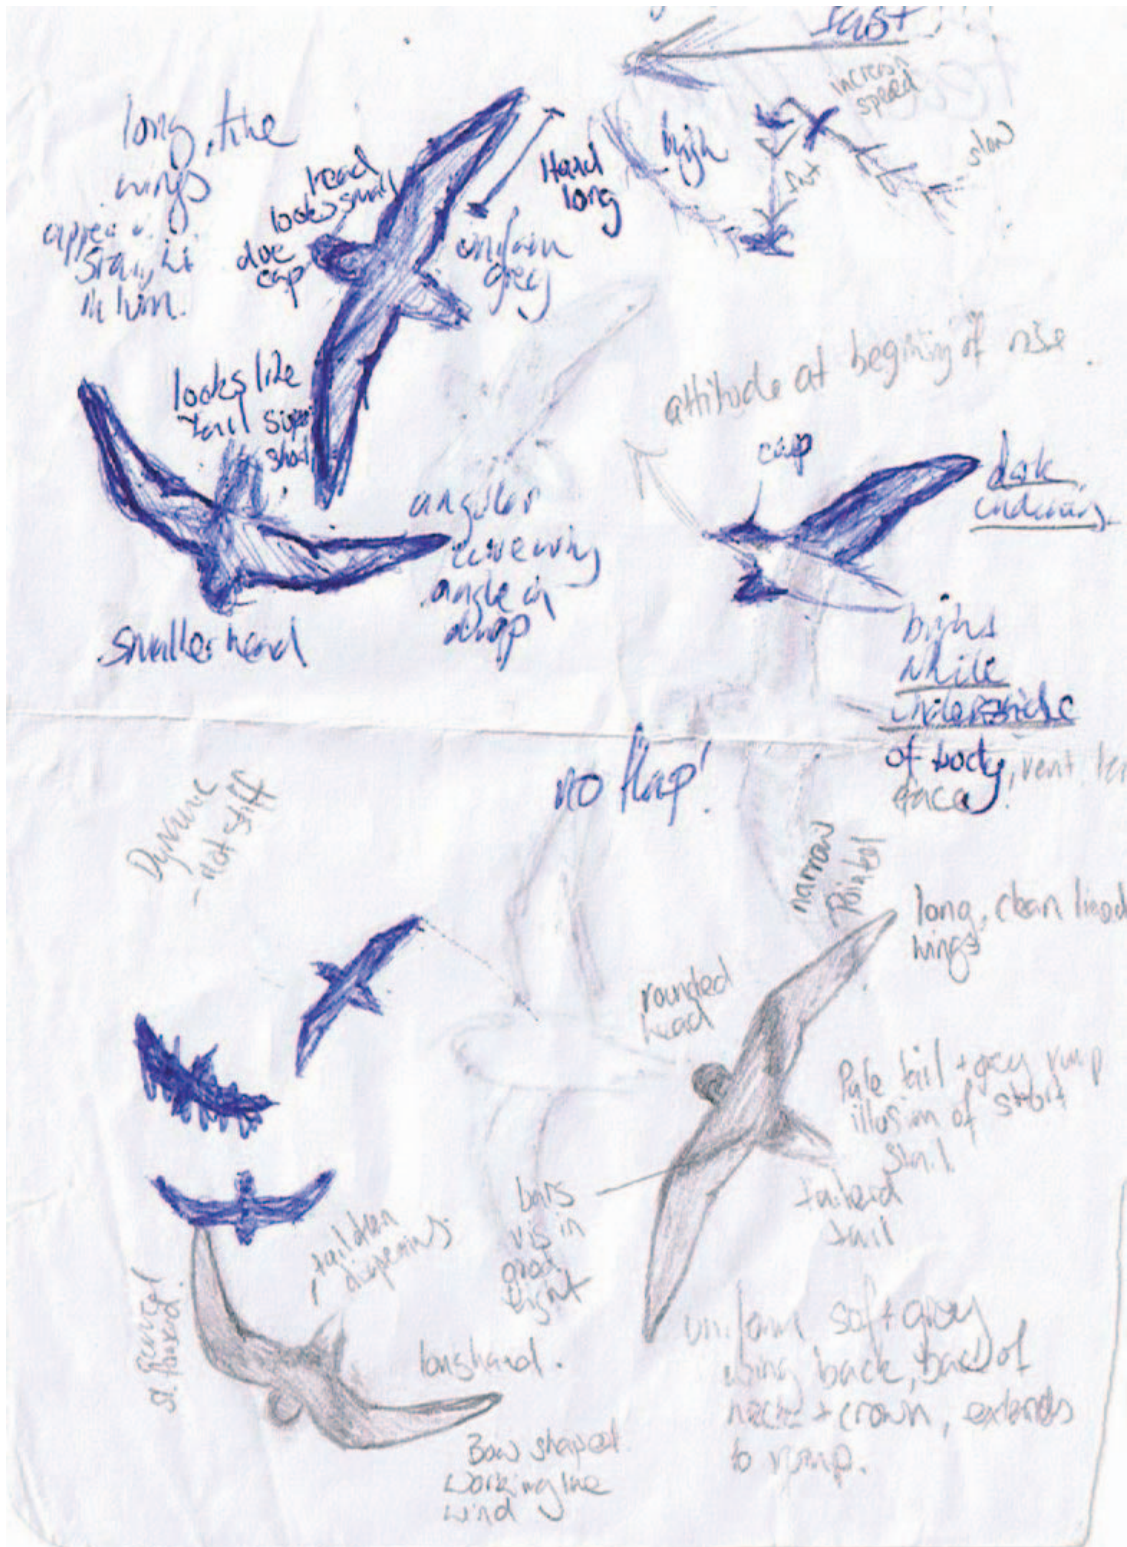 fast!!!
increasn
speed
slow
high
fast
long, fine
wings
appear
straight
in turn.
head
looks small
due
cap
Hand
long
uniform
grey
looks like
tail super
short
attitude at begining of rise.
cap
dark
underwing
angular
wing
angle in
smaller head
bright
white
underside
of body, vent
face
no flap!
Dynamic
- not stiff
narrow
Pointed
long, clean lined
wings
rounded
head
Pale tail + grey rump
illusion of short
tail
bars
vis in
good
light
tail
longhand.
Bow shaped
working the
wind
uniform soft grey
wing back, back of
neck + crown, extends
to rump.